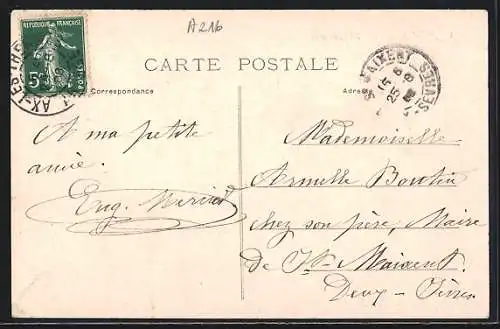 A216
REPUBLIQUE FRANÇAISE
5c
POSTES
AX-LES-TH
CARTE POSTALE
Correspondance
Adre
Sᵗ MAIXENT
15
25 8
D. SÈVRES
A ma petite
amie.
Eug.
Mademoiselle
Armelle Boutin
chez son père, Maire
de St- Maixent.
Deux-Sèvres